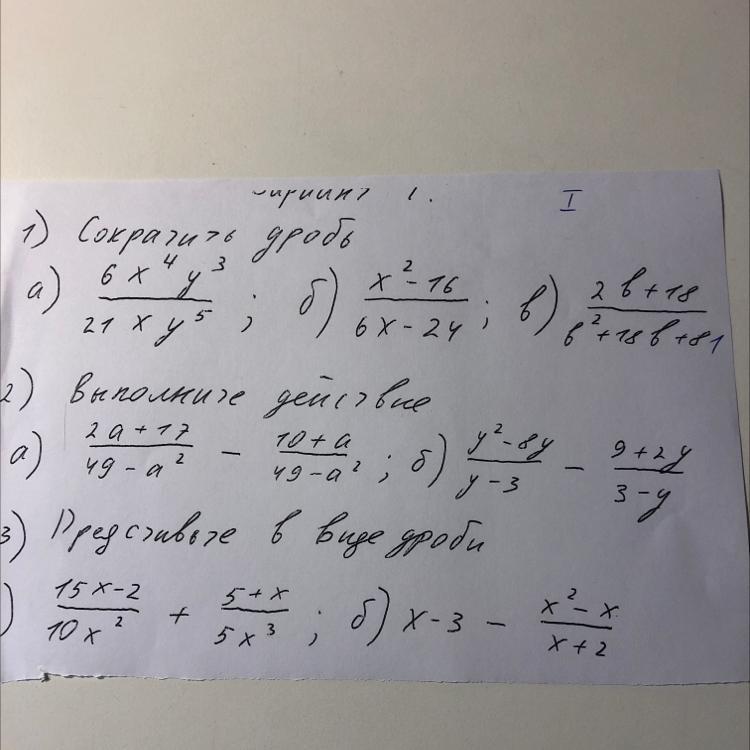 Вариант 1. I
1) Сократить дробь
а) 6x⁴y³ / 21xy⁵ ; б) x²-16 / 6x-24 ; в) 2b+18 / b²+18b+81
2) Выполните действие
а) 2a+17 / 49-a² - 10+a / 49-a² ; б) y²-8y / y-3 - 9+2y / 3-y
3) Предствьте в виде дроби
) 15x-2 / 10x² + 5+x / 5x³ ; б) x-3 - x²-x / x+2